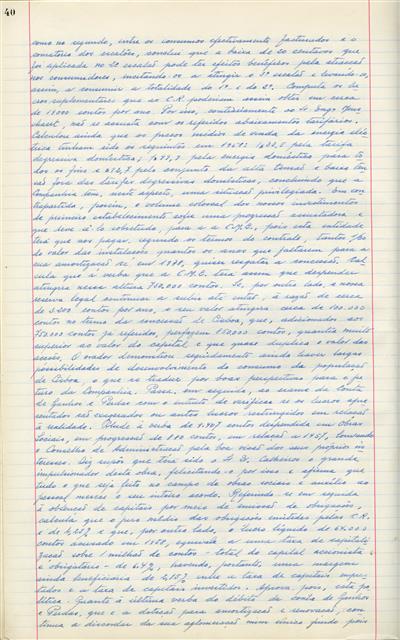 40
como no segundo, entre os consumos efectivamente facturados e o
somatório dos escalões, conclui que a baixa de 20 centavos que
foi aplicada no 2º escalão pode ter efeitos benéficos pela atracção
nos consumidores, incitando-os a atingir o 3º escalão e levando-os,
assim, a consumir a totalidade do 1º e do 2º. Computa os
suplementares que as C.R. poderiam assim obter em cerca
de 18000 contos por ano. Por isso, contrariamente ao
não se assusta com os referidos abaixamentos tarifários.
Calcula ainda que os preços médios de venda da energia eléc
trica tinham sido os seguintes em 1958: pela tarifa
degressiva doméstica; pela energia doméstica para to
dos os fins e pelo conjunto da alta tensão e baixa ten
são fora das tarifas degressivas domésticas, concluindo que a
Companhia tem, neste aspecto, uma situação privilegiada. Em con
trapartida, porém, o volume colossal dos nossos investimentos
de primeiro estabelecimento sofre uma progressão assustadora e
que deve sê-lo sobretudo para a C.M.L., pois esta entidade
terá que nos pagar, segundo os termos do contrato, tantos
do valor das instalações quantos os anos que faltarem para a
sua amortização se, em 1978, quiser resgatar a concessão. Cal
cula que a verba que a C.M.L. terá assim que despender
atingirá nessa altura 750.000 contos. Se, por outro lado, a nossa
reserva legal continuar a subir até então, à razão de cerca
de contos por ano, o seu valor atingirá cerca de 100.000
contos no termo da concessão de Lisboa, que, adicionados aos
750.000 contos já referidos, perfazem 850.000 contos, quantia muito
superior ao valor do capital e que quase duplica o valor das
acções. O orador demonstrou seguidamente ainda haver largas
possibilidades de desenvolvimento do consumo da população
de Lisboa, o que se traduz por boas perspectivas para o fu
turo da Companhia. Passa, em seguida, ao exame da conta
de Ganhos e Perdas com o intuito de verificar se os lucros apre
sentados são exagerados ou antes lucros restringidos em relação
à realidade. Alude à verba de contos despendida em Obras
Sociais, em progressão de 800 contos, em relação a 1957, louvando
o Conselho de Administração pela boa visão dos seus próprios in
teresses. Diz supor que terá sido o o grande
empreendedor desta obra, felicitando-o por isso e afirma que
tudo o que seja feito no campo de obras sociais e auxílio ao
pessoal merece o seu inteiro acordo. Referindo-se em seguida
à obtenção de capitais por meio de emissão de obrigações,
calcula que o juro médio das obrigações emitidas pelas C.R.
é de e que, por outro lado, o lucro líquido de 64.000
contos acusado em 1958, equivale a uma taxa de capitali
zação sobre 1 milhão de contos - total do capital accionista
e obrigatário - de 6,4%, havendo, portanto, uma margem
ainda beneficiária de entre a taxa de capitais empres
tados e a taxa de capitais investidos. Aprova, pois, esta po
lítica. Quanto à última verba do débito da conta de Ganhos
e Perdas, que é a dotação para amortização e renovação, con
tinua a discordar da sua aglomeração num único fundo pois